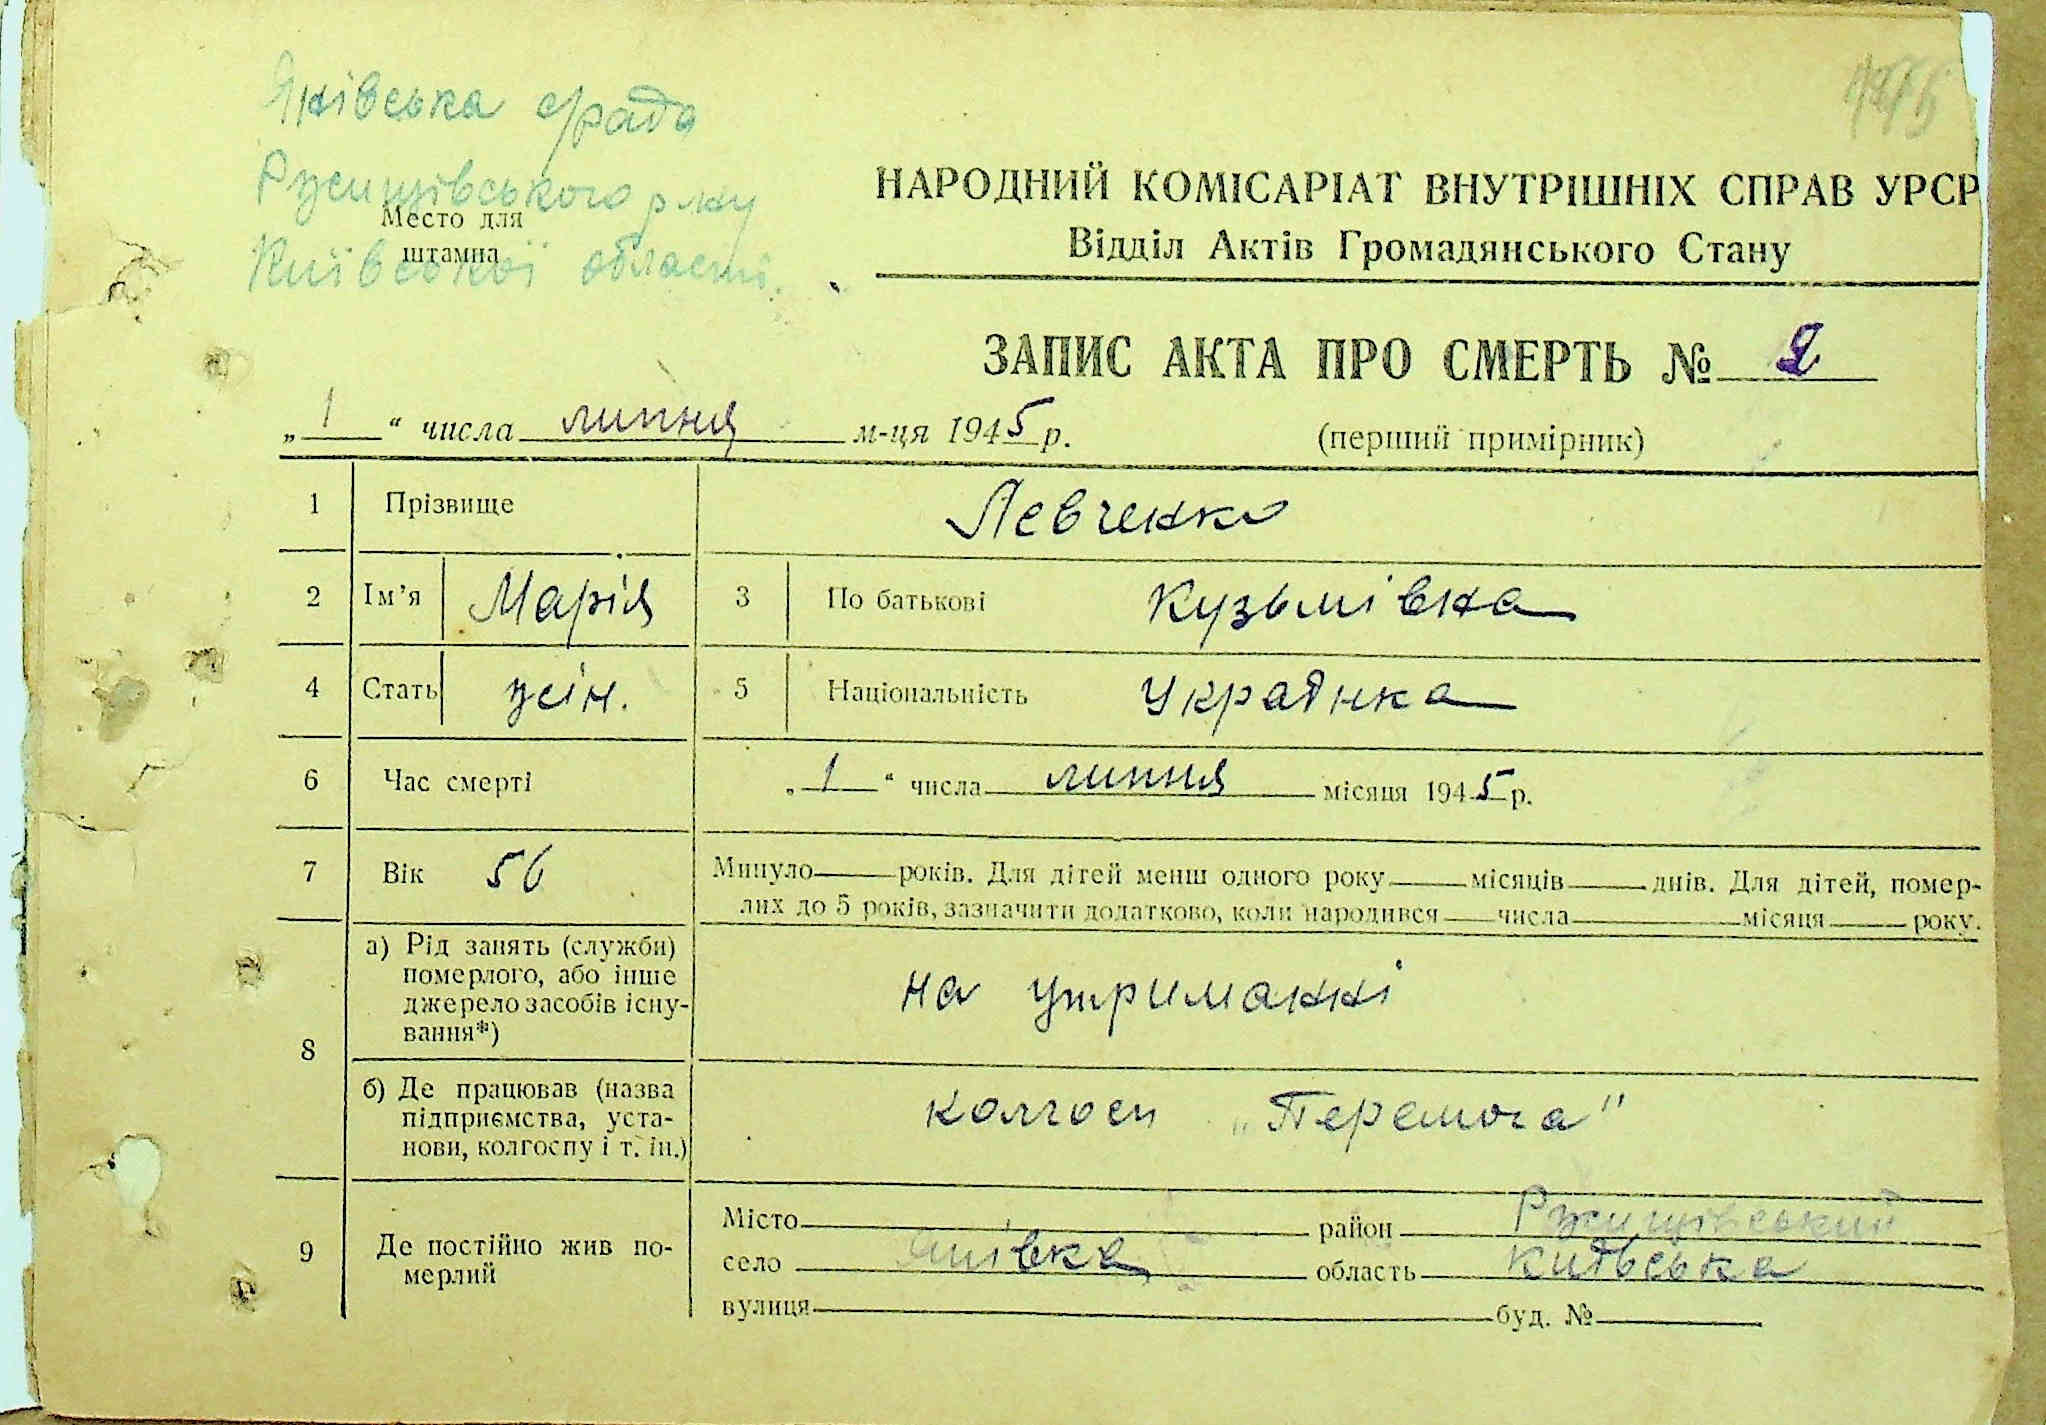 Янівська с/рада
Ржищівського р-ну
Место для
штампа
Київської області.
НАРОДНИЙ КОМІСАРІАТ ВНУТРІШНІХ СПРАВ УРСР
Відділ Актів Громадянського Стану
ЗАПИС АКТА ПРО СМЕРТЬ № 2
„1“ числа липня м-ця 1945 р. (перший примірник)
1 Прізвище Левченко
2 Ім’я Марія 3 По батькові Кузьмівна
4 Стать жін. 5 Національність Українка
6 Час смерті „1“ числа липня місяця 1945 р.
7 Вік 56 Минуло років. Для дітей менш одного року місяців днів. Для дітей, помер-
лих до 5 років, зазначити додатково, коли народився числа місяця року.
8 а) Рід занять (служби)
померлого, або інше
джерело засобів існу-
вання*)
на утриманні
б) Де працював (назва
підприємства, уста-
нови, колгоспу і т. ін.)
колгосп „Перемога"
9 Де постійно жив по-
мерлий
Місто район Ржищівський
село Янівка область Київська
вулиця буд. №